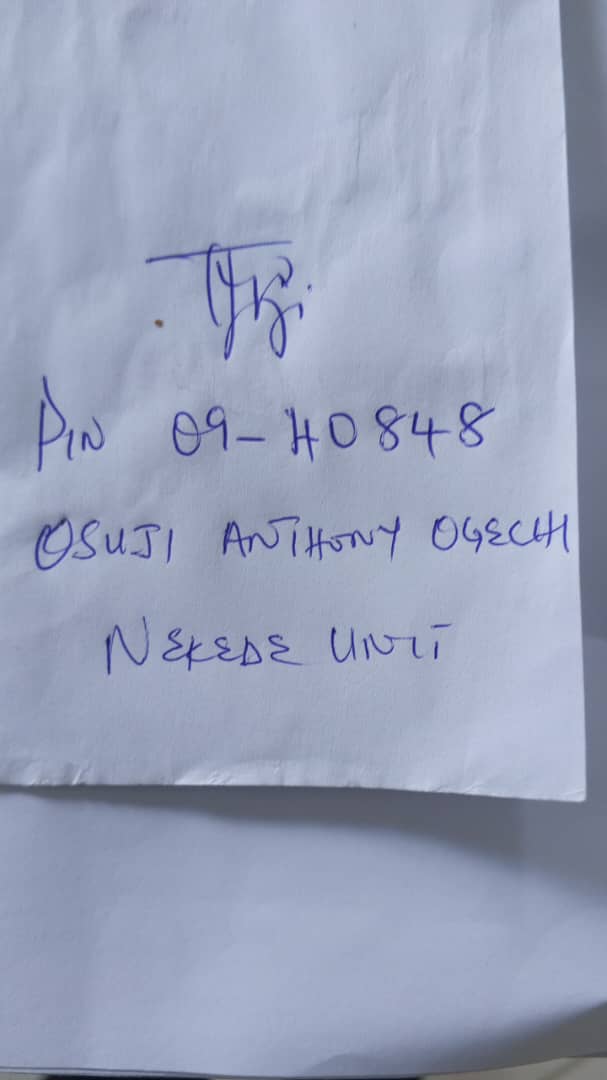 PIN 09-H0848
OSUJI ANTHONY OGECHI
NEKEDE UNIT